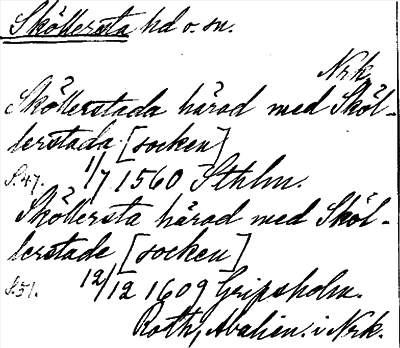 Sköllersta hd o. sn.
Nrk.
Sköllerstada härad med Sköl-
lerstada [socken]
S. 47. 1/7 1560 Sthlm.
Sköllersta härad med Sköl-
lerstade [socken]
S. 51. 12/12 1609 Gripsholm.
Roth, Avalien. i Nrk.